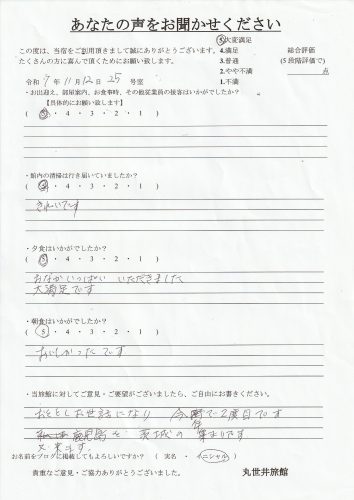 あなたの声をお聞かせください
この度は、当宿をご利用頂きまして誠にありがとうございます。
たくさんの方に喜んで頂くためにお願い致します。
⑤大変満足
4.満足
3.普通
2.やや不満
1.不満
総合評価
(5段階評価で)
点
令和 7年 11月 12日 25号室
・お出迎え、部屋案内、お食事時、その他従業員の接客はいかがでしたか?
【具体的にお願い致します】
( ⑤ ・ 4 ・ 3 ・ 2 ・ 1 )
・館内の清掃は行き届いていましたか?
( ⑤ ・ 4 ・ 3 ・ 2 ・ 1 )
きれいです
・夕食はいかがでしたか?
( ⑤ ・ 4 ・ 3 ・ 2 ・ 1 )
おなかいっぱい いただきました
大満足です
・朝食はいかがでしたか?
( ⑤ ・ 4 ・ 3 ・ 2 ・ 1 )
おいしかったです
・当旅館に対してご意見・ご要望がございましたら、ご自由にお書きください。
お世話になり 今年で2度目です
鹿児島と 茨城の 集まりです
又来ます。
お名前をブログに掲載してもよろしいですか? ( 実名 ・ イニシャル )
貴重なご意見・ご協力ありがとうございました。
丸世井旅館